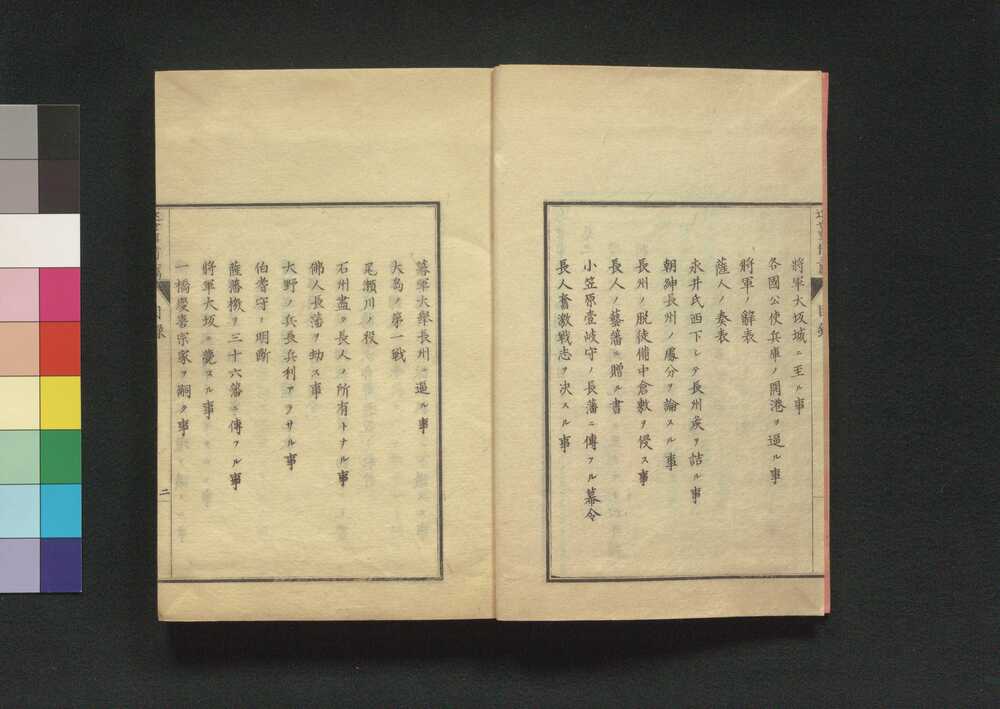 將軍大坂城ニ至ル事
各國公使兵庫ノ開港ヲ逼ル事
將軍ノ辭表
薩人ノ奏表
永井氏西下シテ長州矦ヲ詰ル事
朝紳長州ノ處分ヲ論スル事
長州ノ脱徒備中倉敷ヲ侵ス事
長人ノ藝藩ニ贈ル書
小笠原壹岐守ノ長藩ニ傳フル幕令
長人奮激戰志ヲ决スル事
目錄
幕軍大擧長州ニ逼ル事
大島ノ第一戰
尾瀬川ノ役
石州盡ク長人ノ所有トナル事
佛人長藩ヲ劫ス事
大野ノ兵長兵利アラサル事
伯耆守ノ明斷
薩藩檄ヲ三十六藩ニ傳フル事
將軍大坂ニ薨スル事
一橋慶喜宗家ヲ嗣ク事
目錄
二